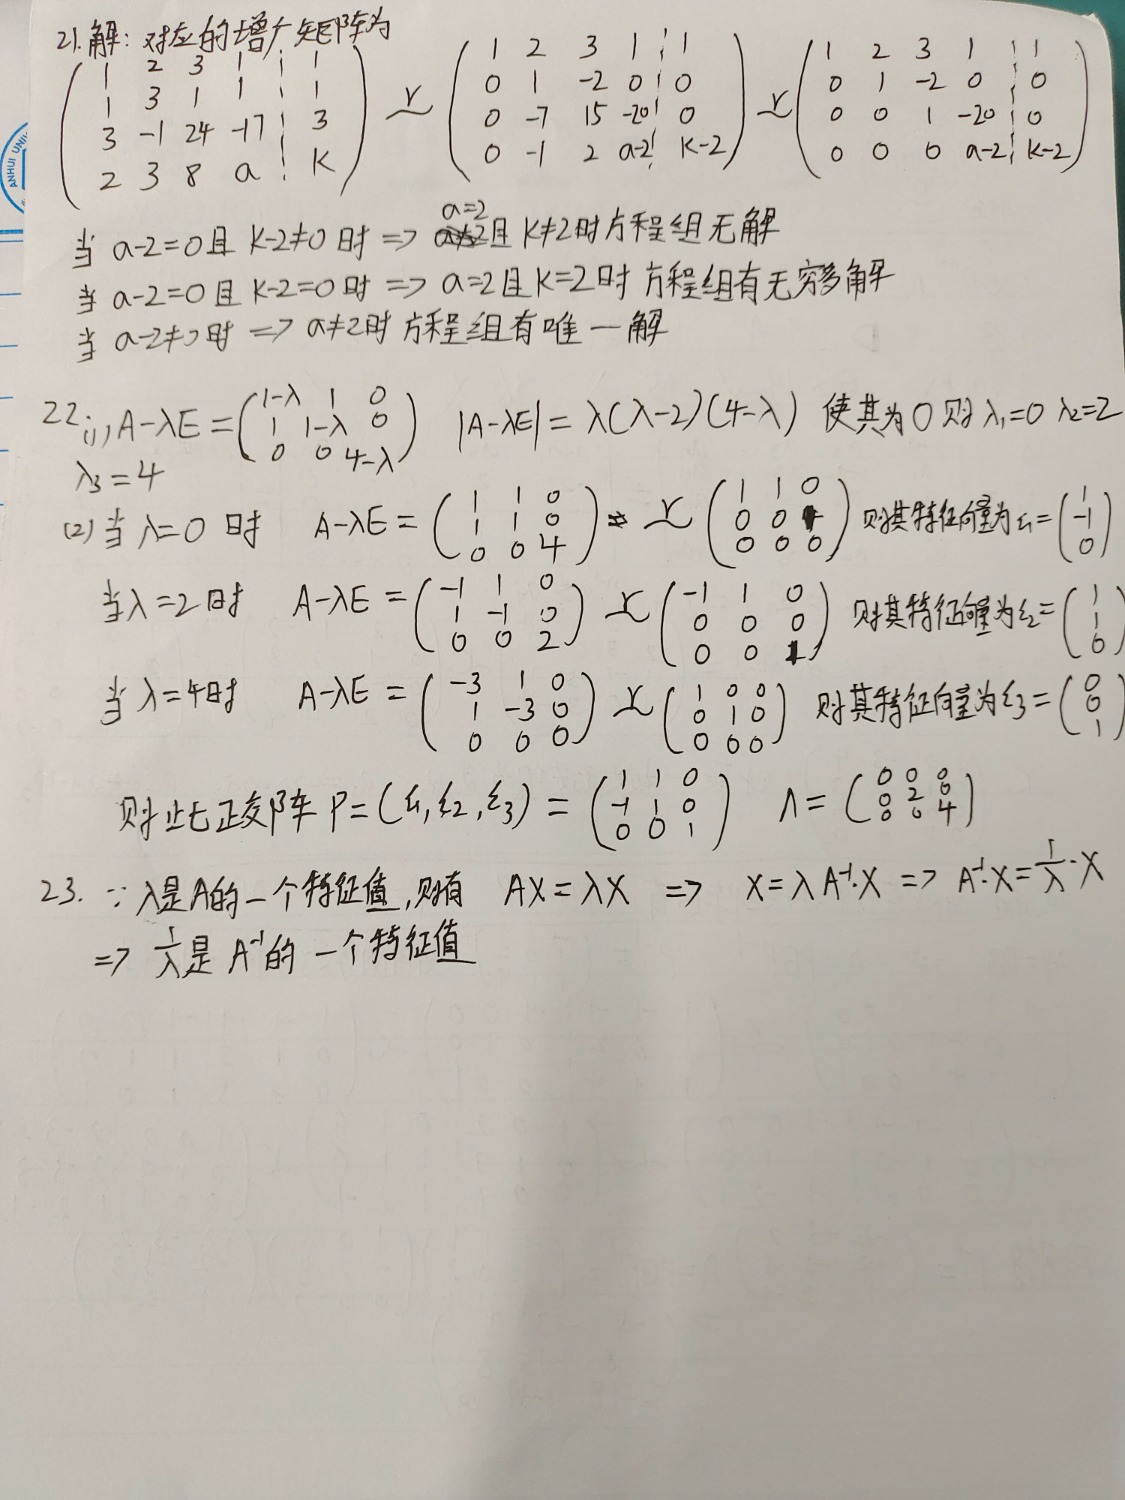 21.解：对应的增广矩阵为
(1 2 3 1 ¦ 1; 1 3 1 1 ¦ 1; 3 -1 24 -17 ¦ 3; 2 3 8 a ¦ k) ~r (1 2 3 1 ¦ 1; 0 1 -2 0 ¦ 0; 0 -7 15 -20 ¦ 0; 0 -1 2 a-2 ¦ k-2) ~r (1 2 3 1 ¦ 1; 0 1 -2 0 ¦ 0; 0 0 1 -20 ¦ 0; 0 0 0 a-2 ¦ k-2)
当 a-2=0且 k-2≠0 时 => a=2且 k≠2时方程组无解
当 a-2=0且 k-2=0时 => a=2且k=2时 方程组有无穷多解
当 a-2≠0时 => a≠2时 方程组有唯一解
22.(1) A-λE = (1-λ 1 0; 1 1-λ 0; 0 0 4-λ) |A-λE| = λ(λ-2)(4-λ) 使其为0则 λ₁=0 λ₂=2
λ₃=4
(2)当 λ=0 时 A-λE = (1 1 0; 1 1 0; 0 0 4) ~r (1 1 0; 0 0 1; 0 0 0) 则其特征向量为ξ₁=(1; -1; 0)
当λ=2时 A-λE = (-1 1 0; 1 -1 0; 0 0 2) ~r (-1 1 0; 0 0 0; 0 0 1) 则其特征向量为ξ₂=(1; 1; 0)
当 λ=4时 A-λE = (-3 1 0; 1 -3 0; 0 0 0) ~r (1 0 0; 0 1 0; 0 0 0) 则其特征向量为ξ₃=(0; 0; 1)
则此正交阵 P=(ξ₁,ξ₂,ξ₃) = (1 1 0; -1 1 0; 0 0 1) Λ= (0 0 0; 0 2 0; 0 0 4)
23. ∵λ是A的一个特征值,则有 AX=λX => X=λA⁻¹·X => A⁻¹·X=1/λ·X
=> 1/λ是 A⁻¹的 一个特征值
ANHUI UNI